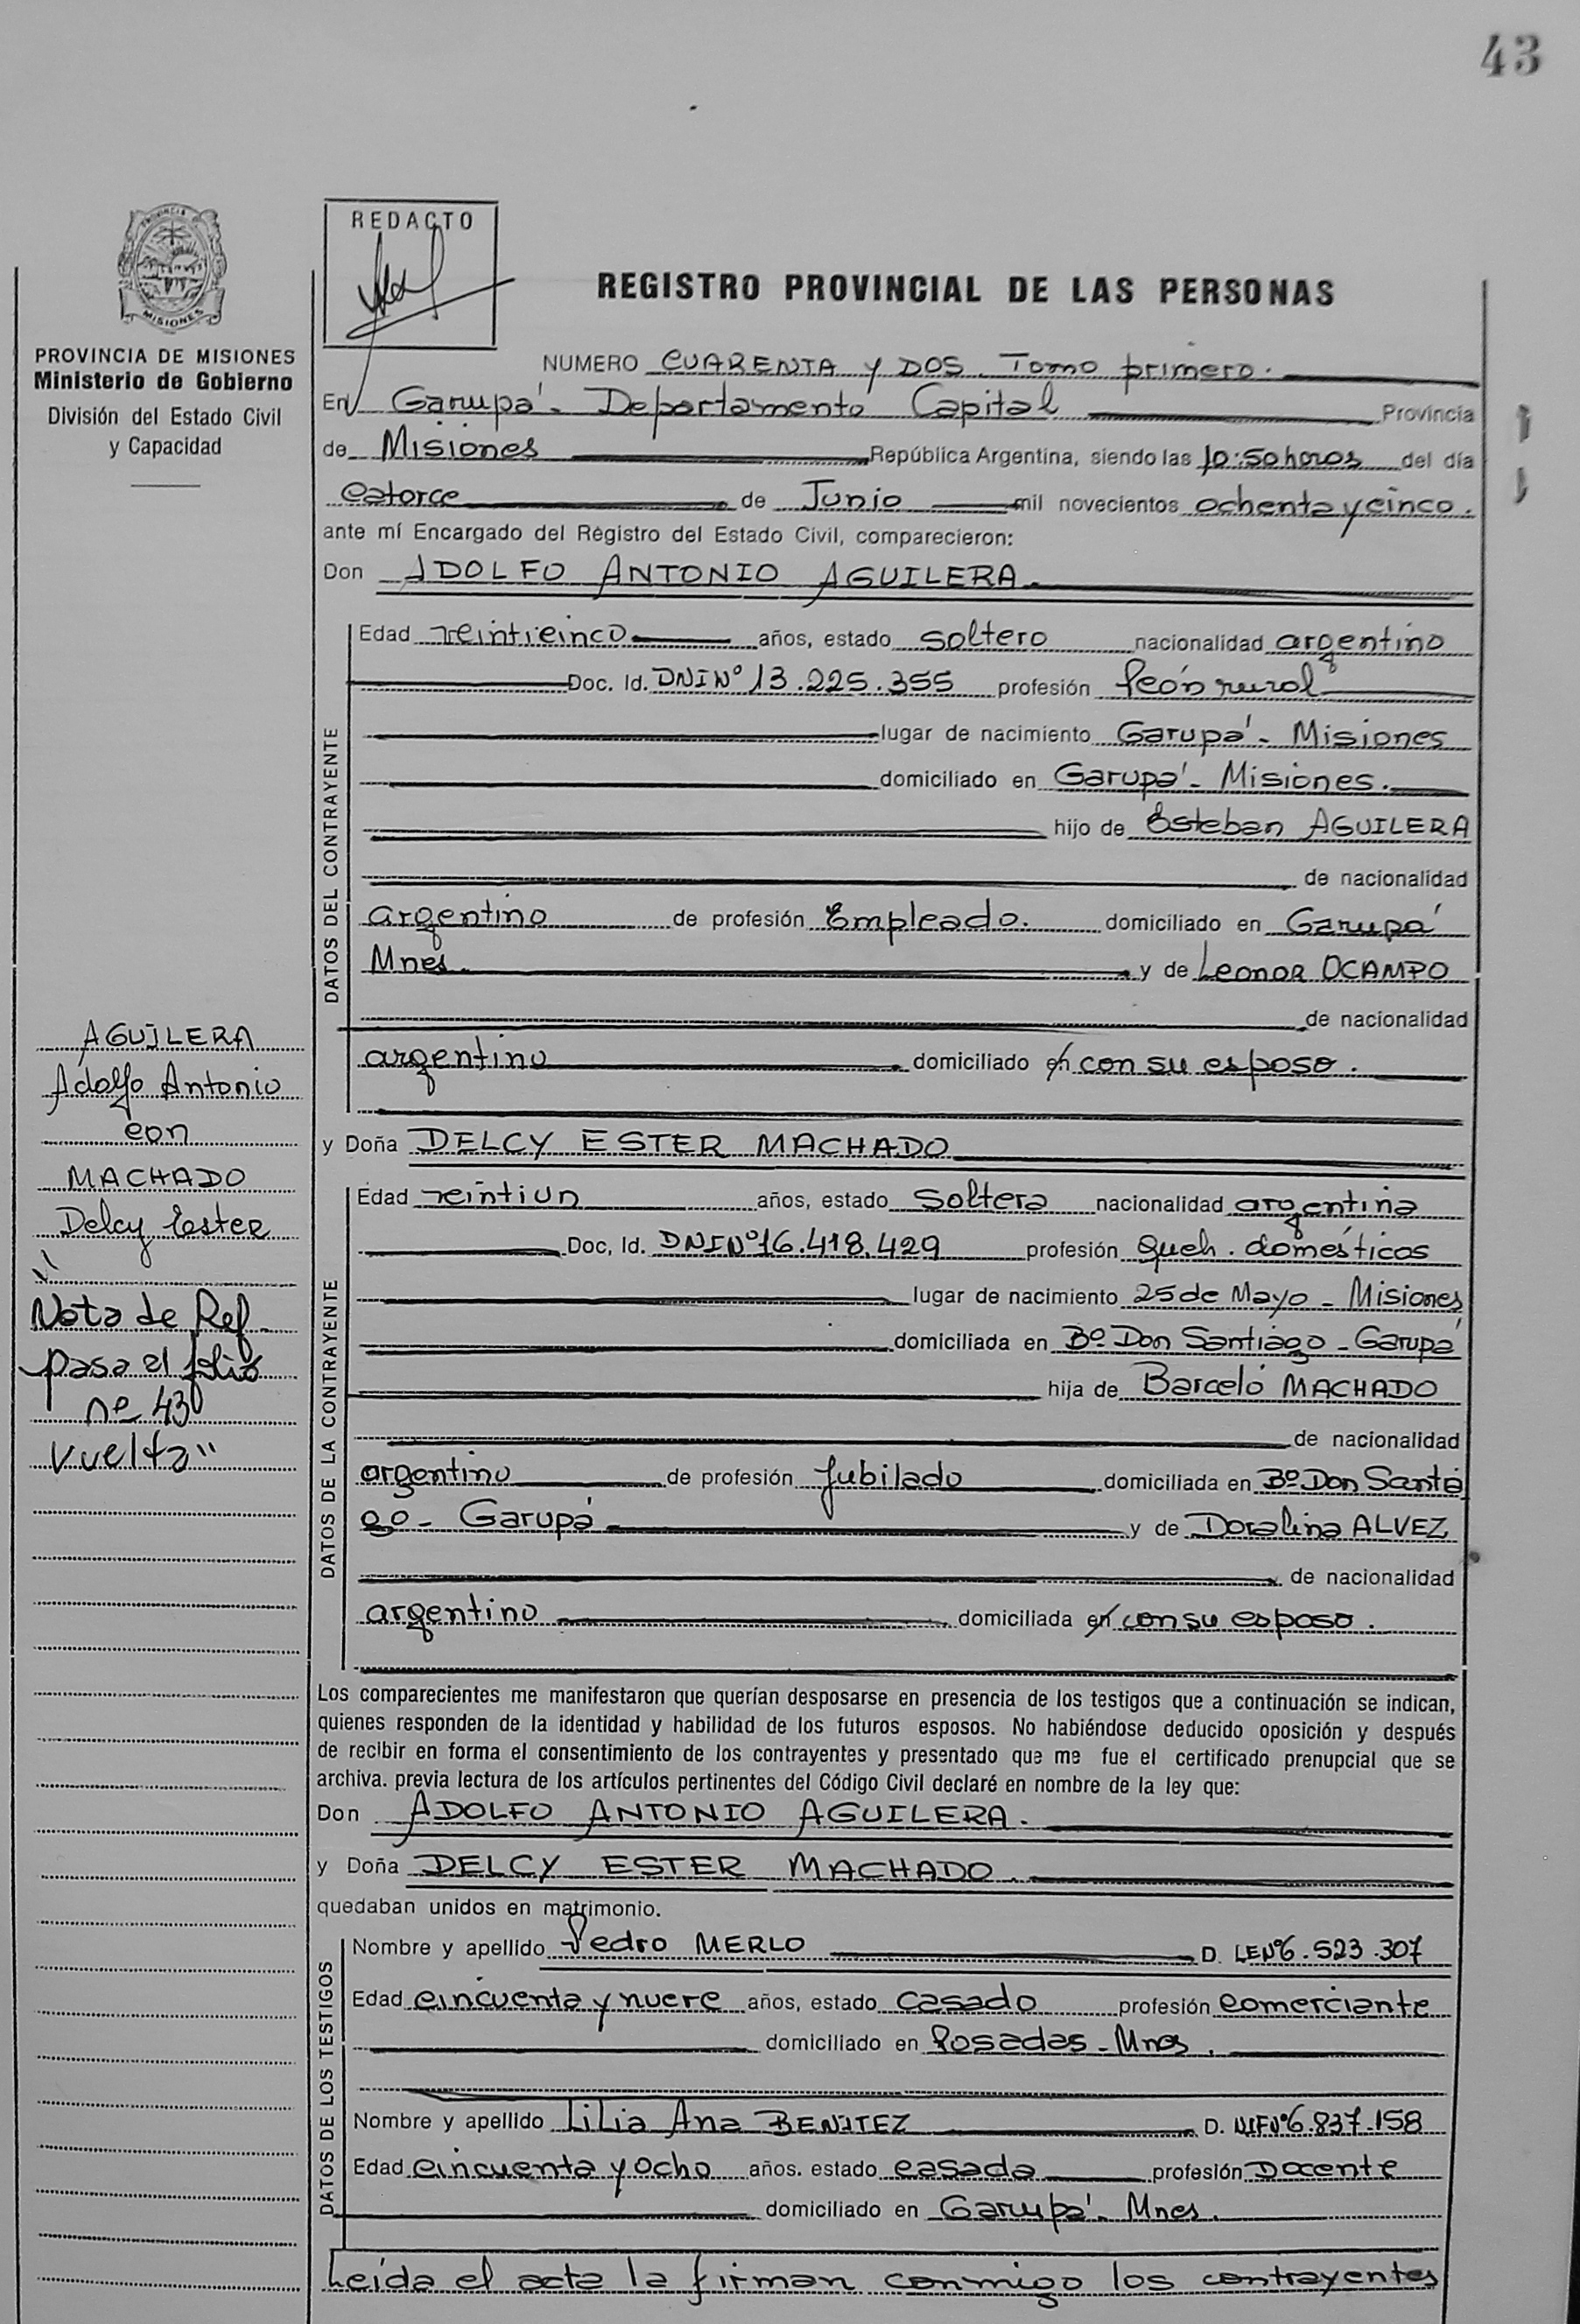 43
PROVINCIA
MISIONES
PROVINCIA DE MISIONES
Ministerio de Gobierno
División del Estado Civil
y Capacidad
REDACTO
REGISTRO PROVINCIAL DE LAS PERSONAS
NUMERO CUARENTA y DOS. Tomo primero.
En Garupá - Departamento Capital Provincia
de Misiones República Argentina, siendo las 10:50 horas del día
Catorce de Junio mil novecientos ochenta y cinco.
ante mí Encargado del Registro del Estado Civil, comparecieron:
Don ADOLFO ANTONIO AGUILERA.
DATOS DEL CONTRAYENTE
Edad veinticinco años, estado soltero nacionalidad argentino
Doc. Id. DNI Nº 13.225.355 profesión Peón rural
lugar de nacimiento Garupá - Misiones
domiciliado en Garupá - Misiones.
hijo de Esteban AGUILERA
de nacionalidad
argentino de profesión Empleado. domiciliado en Garupá
Mnes. y de Leonor OCAMPO
de nacionalidad
argentino domiciliado en con su esposo.
y Doña DELCY ESTER MACHADO
DATOS DE LA CONTRAYENTE
Edad veintiun años, estado soltera nacionalidad argentina
Doc, Id. DNI Nº 16.418.429 profesión Queh. domésticos
lugar de nacimiento 25 de Mayo - Misiones
domiciliada en Bº Don Santiago - Garupá
hija de Barceló MACHADO
de nacionalidad
argentino de profesión Jubilado domiciliada en Bº Don Santia
go - Garupá y de Doralina ALVEZ
de nacionalidad
argentino domiciliada en con su esposo.
AGUILERA
Adolfo Antonio
con
MACHADO
Delcy Ester
Nota de Ref.
pasa al folio
nº 43
vuelta"
Los comparecientes me manifestaron que querían desposarse en presencia de los testigos que a continuación se indican,
quienes responden de la identidad y habilidad de los futuros esposos. No habiéndose deducido oposición y después
de recibir en forma el consentimiento de los contrayentes y presentado que me fue el certificado prenupcial que se
archiva. previa lectura de los artículos pertinentes del Código Civil declaré en nombre de la ley que:
Don ADOLFO ANTONIO AGUILERA.
y Doña DELCY ESTER MACHADO.
quedaban unidos en matrimonio.
DATOS DE LOS TESTIGOS
Nombre y apellido Pedro MERLO D. LE Nº 6.523.307
Edad cincuenta y nueve años, estado casado profesión comerciante
domiciliado en Posadas - Mnes.
Nombre y apellido Lilia Ana BENITEZ D. Nº 6.837.158
Edad cincuenta y ocho años. estado casada profesión Docente
domiciliado en Garupá - Mnes.
Leída el acta la firman conmigo los contrayentes